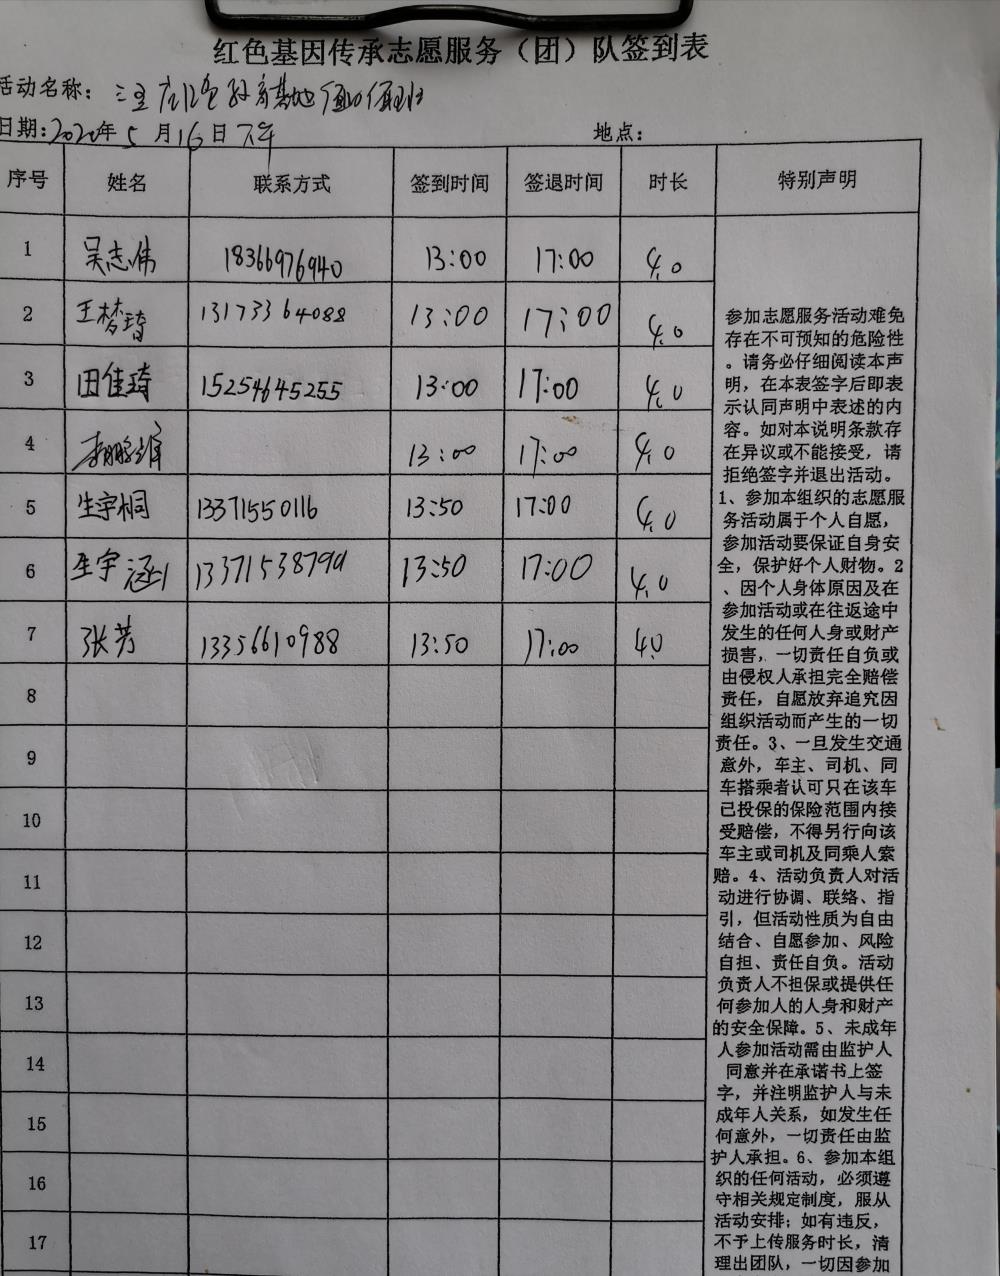 红色基因传承志愿服务（团）队签到表
活动名称：三里庄红色教育基地
日期:2020年5月16日下午 地点：
序号 姓名 联系方式 签到时间 签退时间 时长 特别声明
1 吴志伟 18366976940 13:00 17:00 4.0
2 王梦琦 13173364088 13:00 17:00 4.0
3 田佳琦 15254645255 13:00 17:00 4.0
4 李鹏 13:00 17:00 4.0
5 生宇桐 13371550116 13:50 17:00 4.0
6 生宇涵 13371538799 13:50 17:00 4.0
7 张芳 13356610988 13:50 17:00 4.0
8
9
10
11
12
13
14
15
16
17
参加志愿服务活动难免
存在不可预知的危险性
。请务必仔细阅读本声
明，在本表签字后即表
示认同声明中表述的内
容。如对本说明条款存
在异议或不能接受，请
拒绝签字并退出活动。
1、参加本组织的志愿服
务活动属于个人自愿，
参加活动要保证自身安
全，保护好个人财物。2
、因个人身体原因及在
参加活动或在往返途中
发生的任何人身或财产
损害，一切责任自负或
由侵权人承担完全赔偿
责任，自愿放弃追究因
组织活动而产生的一切
责任。3、一旦发生交通
意外，车主、司机、同
车搭乘者认可只在该车
已投保的保险范围内接
受赔偿，不得另行向该
车主或司机及同乘人索
赔。4、活动负责人对活
动进行协调、联络、指
引，但活动性质为自由
结合、自愿参加、风险
自担、责任自负。活动
负责人不担保或提供任
何参加人的人身和财产
的安全保障。5、未成年
人参加活动需由监护人
同意并在承诺书上签
字，并注明监护人与未
成年人关系，如发生任
何意外，一切责任由监
护人承担。6、参加本组
织的任何活动，必须遵
守相关规定制度，服从
活动安排；如有违反，
不予上传服务时长，清
理出团队，一切因参加